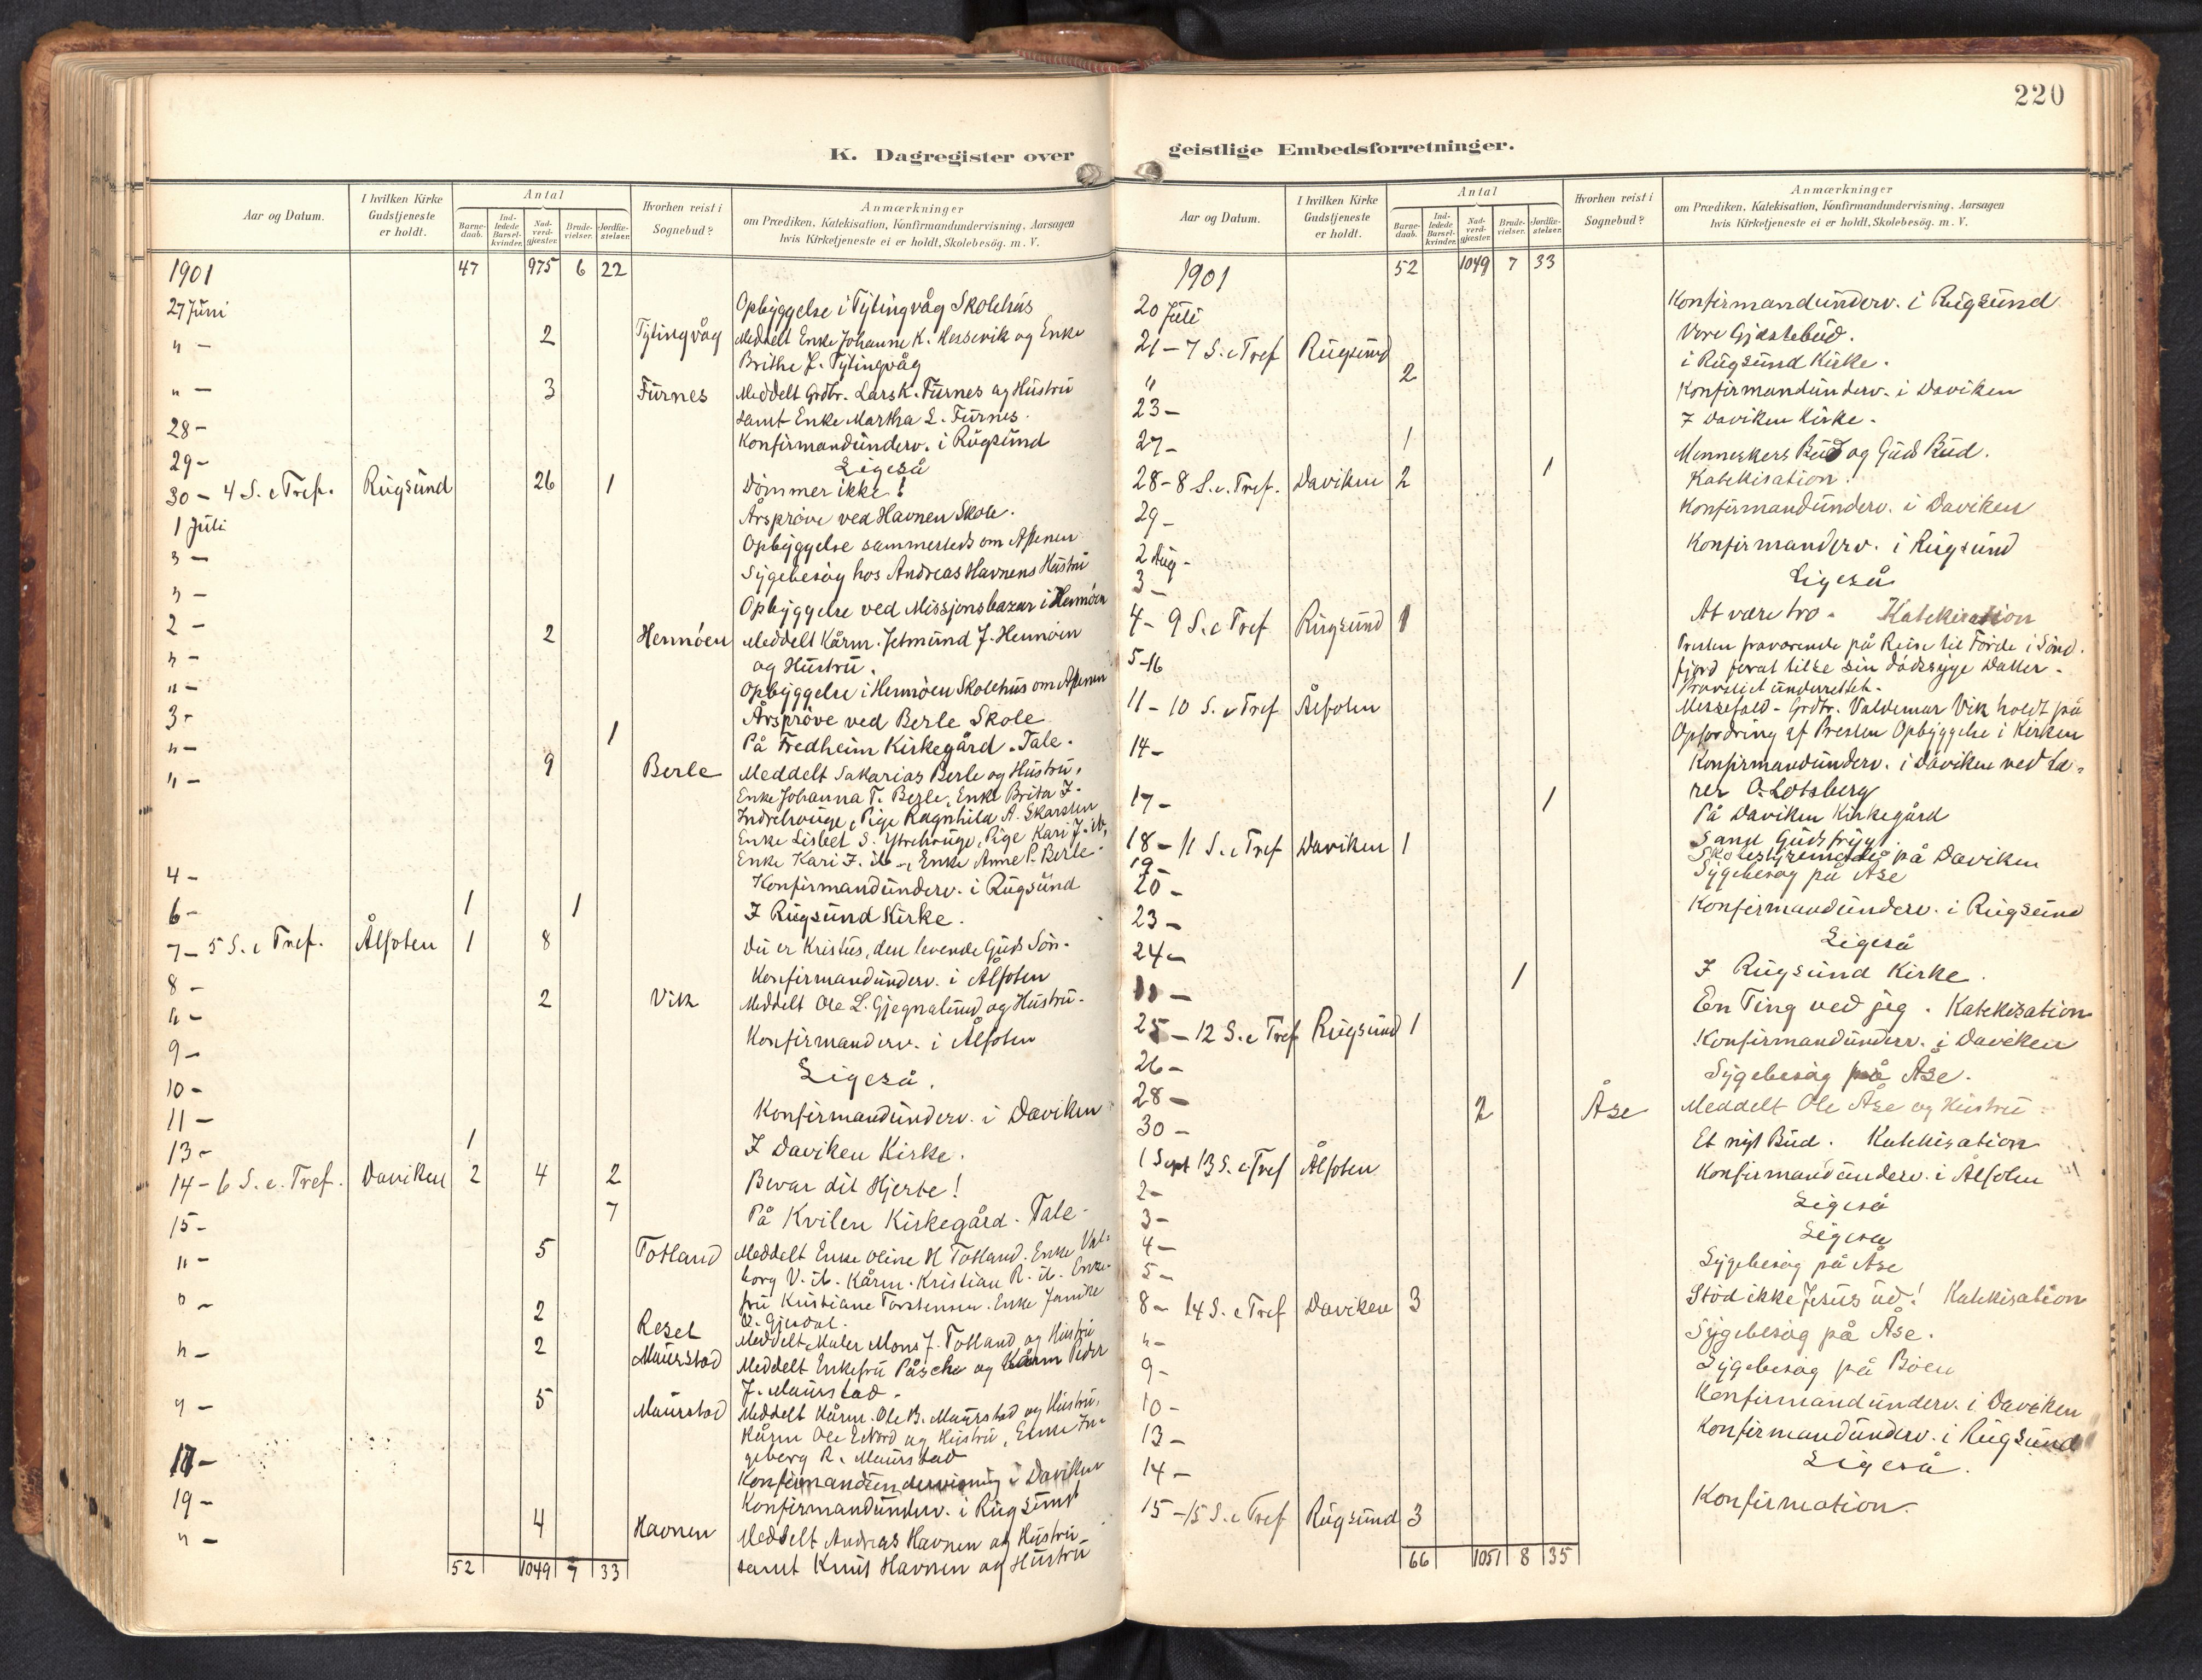 220
K. Dagregister over geistlige Embedsforretninger.
Aar og Datum. I hvilken Kirke Gudstjeneste er holdt. Antal Barne-daab. Ind-ledede Barsel-kvinder. Nad-verd-gjæster. Brude-vielser. Jordfæ-stelser. Hvorhen reist i Sognebud? Anmærkninger om Prædiken, Katekisation, Konfirmandundervisning, Aarsagen hvis Kirketjeneste ei er holdt, Skolebesög. m. V.
1901 47 975 6 22
27 Juni Opbyggelse i Tytingvåg Skolehus
" – 2 Tytingvåg Meddelt Enke Johanne K. Hessevik og Enke
Brithe J. Tytingvåg
" – 3 Furnes Meddelt Grdbr. Lars K. Furnes og Hustru
samt Enke Martha L. Furnes.
28 – Konfirmandunderv. i Rugsund
29 – Ligeså
30 – 4 S. e Tref. Rugsund 26 1 Dömmer ikke!
1 Juli Årspröve ved Havnen Skole.
" – Opbyggelse sammesteds om Aftenen
" – Sygebesög hos Andreas Havnens Hustru
2 – Opbyggelse ved Missjonsbazar i Hennöen
" – 2 Hennöen Meddelt Kårm. Jetmund J. Hennöen
og Hustru.
" – Opbyggelse i Hennöen Skolehus om Aftenen
3 – Årspröve ved Berle Skole
" – 1 På Fredheim Kirkegård. Tale.
" – 9 Berle Meddelt Sakarias Berle og Hustru,
Enke Johanna T. Berle, Enke Brita J.
Indrehouge, Pige Ragnhild A. Skarsten
Enke Lisbet S. Ytrehouge, Pige Kari J. ib,
Enke Kari J. ib –, Enke Anne P. Berle
4 – Konfirmandunderv. i Rugsund
6 – 1 1 I Rugsund Kirke.
7 – 5 S. e Tref. Ålfoten 1 8 Du er Kristus, den levende Guds Sön.
8 – Konfirmandunderv. i Ålfoten
" – 2 Vik Meddelt Ole L. Gjegnalund og Hustru.
9 – Konfirmanderv. i Ålfoten
10 – Ligeså.
11 – Konfirmandunderv. i Daviken
13 – 1 I Daviken Kirke.
14 – 6 S. e. Tref. Daviken 2 4 2 Bevar dit Hjerte!
15 – 7 På Kvilen Kirkegård. Tale.
" – 5 Totland Meddelt Enke Oline H Totland. Enke Val-
borg V. ib. Kårm. Kristian R. ib. Enke-
fru Kristiane Torstensen. Enke Jamike
O. Gjesdal.
" – 2 Reset Meddelt Maler Mons J. Totland og Hustru
" – 2 Maurstad Meddelt Enkefru Påsche og Kårm Peder
J. Maurstad.
" – 5 Maurstad Meddelt Kårm. Ole B. Maurstad og Hustru,
Kårm Ole E Nord og Hustru, Enke In-
geborg R. Maurstad
17 – Konfirmandundervisning i Daviken
19 – Konfirmandunderv. i Rugsund
" – 4 Havnen Meddelt Andreas Havnen og Hustru
samt Knut Havnen og Hustru
52 1049 7 33
Aar og Datum. I hvilken Kirke Gudstjeneste er holdt. Antal Barne-daab. Ind-ledede Barsel-kvinder. Nad-verd-gjæster. Brude-vielser. Jordfæ-stelser. Hvorhen reist i Sognebud? Anmærkninger om Prædiken, Katekisation, Konfirmandundervisning, Aarsagen hvis Kirketjeneste ei er holdt, Skolebesög. m. V.
1901 52 1049 7 33
20 Juli Konfirmandunderv. i Rugsund
21 – 7 S. e Tref Rugsund Vore Gjæstebud.
" 2 i Rugsund Kirke.
23 – Konfirmandunderv. i Daviken
27 – 1 I Daviken Kirke.
28 – 8 S. e. Tref. Daviken 2 1 Menneskers Bud og Guds Bud.
Katekisation.
29 – Konfirmandunderv. i Daviken
2 Aug – Konfirmanderv. i Rugsund
3 – Ligeså
4 – 9 S. e Tref Rugsund 1 At være tro. Katekisation
5–16 Presten fraværende på Reise til Förde i Sönd-
fjord forat tilse sin dödssyge Datter.
Provstiet underrettet.
11 – 10 S. e Tref Ålfoten Messefald – Grdbr. Valdemar Vik holdt på
Opfordring af Presten Opbyggelse i Kirken
14 – Konfirmandunderv. i Daviken ved Læ-
rer O. Lotsberg
17 – 1 På Daviken Kirkegård
18 – 11 S. e Tref Daviken 1 Sand Gudsfrygt.
19 – Skolestyremöde på Daviken
20 – Sygebesög på Åse
23 – Konfirmandunderv. i Rugsund
24 – Ligeså
" – 1 I Rugsund Kirke.
25 – 12 S. e Tref Rugsund 1 En Ting ved jeg. Katekisation
26 – Konfirmandunderv. i Daviken
28 – Sygebesög på Åse.
30 – 2 Åse Meddelt Ole Åse og Hustru
1 Sept 13 S. e Tref Ålfoten Et nyt Bud. Katekisation
2 – Konfirmandunderv. i Ålfoten
3 – Ligeså
4 – Ligeså
5 – Sygebesög på Åse
8 – 14 S. e Tref Daviken 3 Stöd ikke Jesus ud! Katekisation
" – Sygebesög på Åse.
9 – Sygebesög på Böen
10 – Konfirmandunderv. i Daviken
13 – Konfirmandunderv. i Rugsund
14 – Ligeså.
15 – 15 S. e Tref Rugsund 3 Konfirmation.
66 1051 8 35